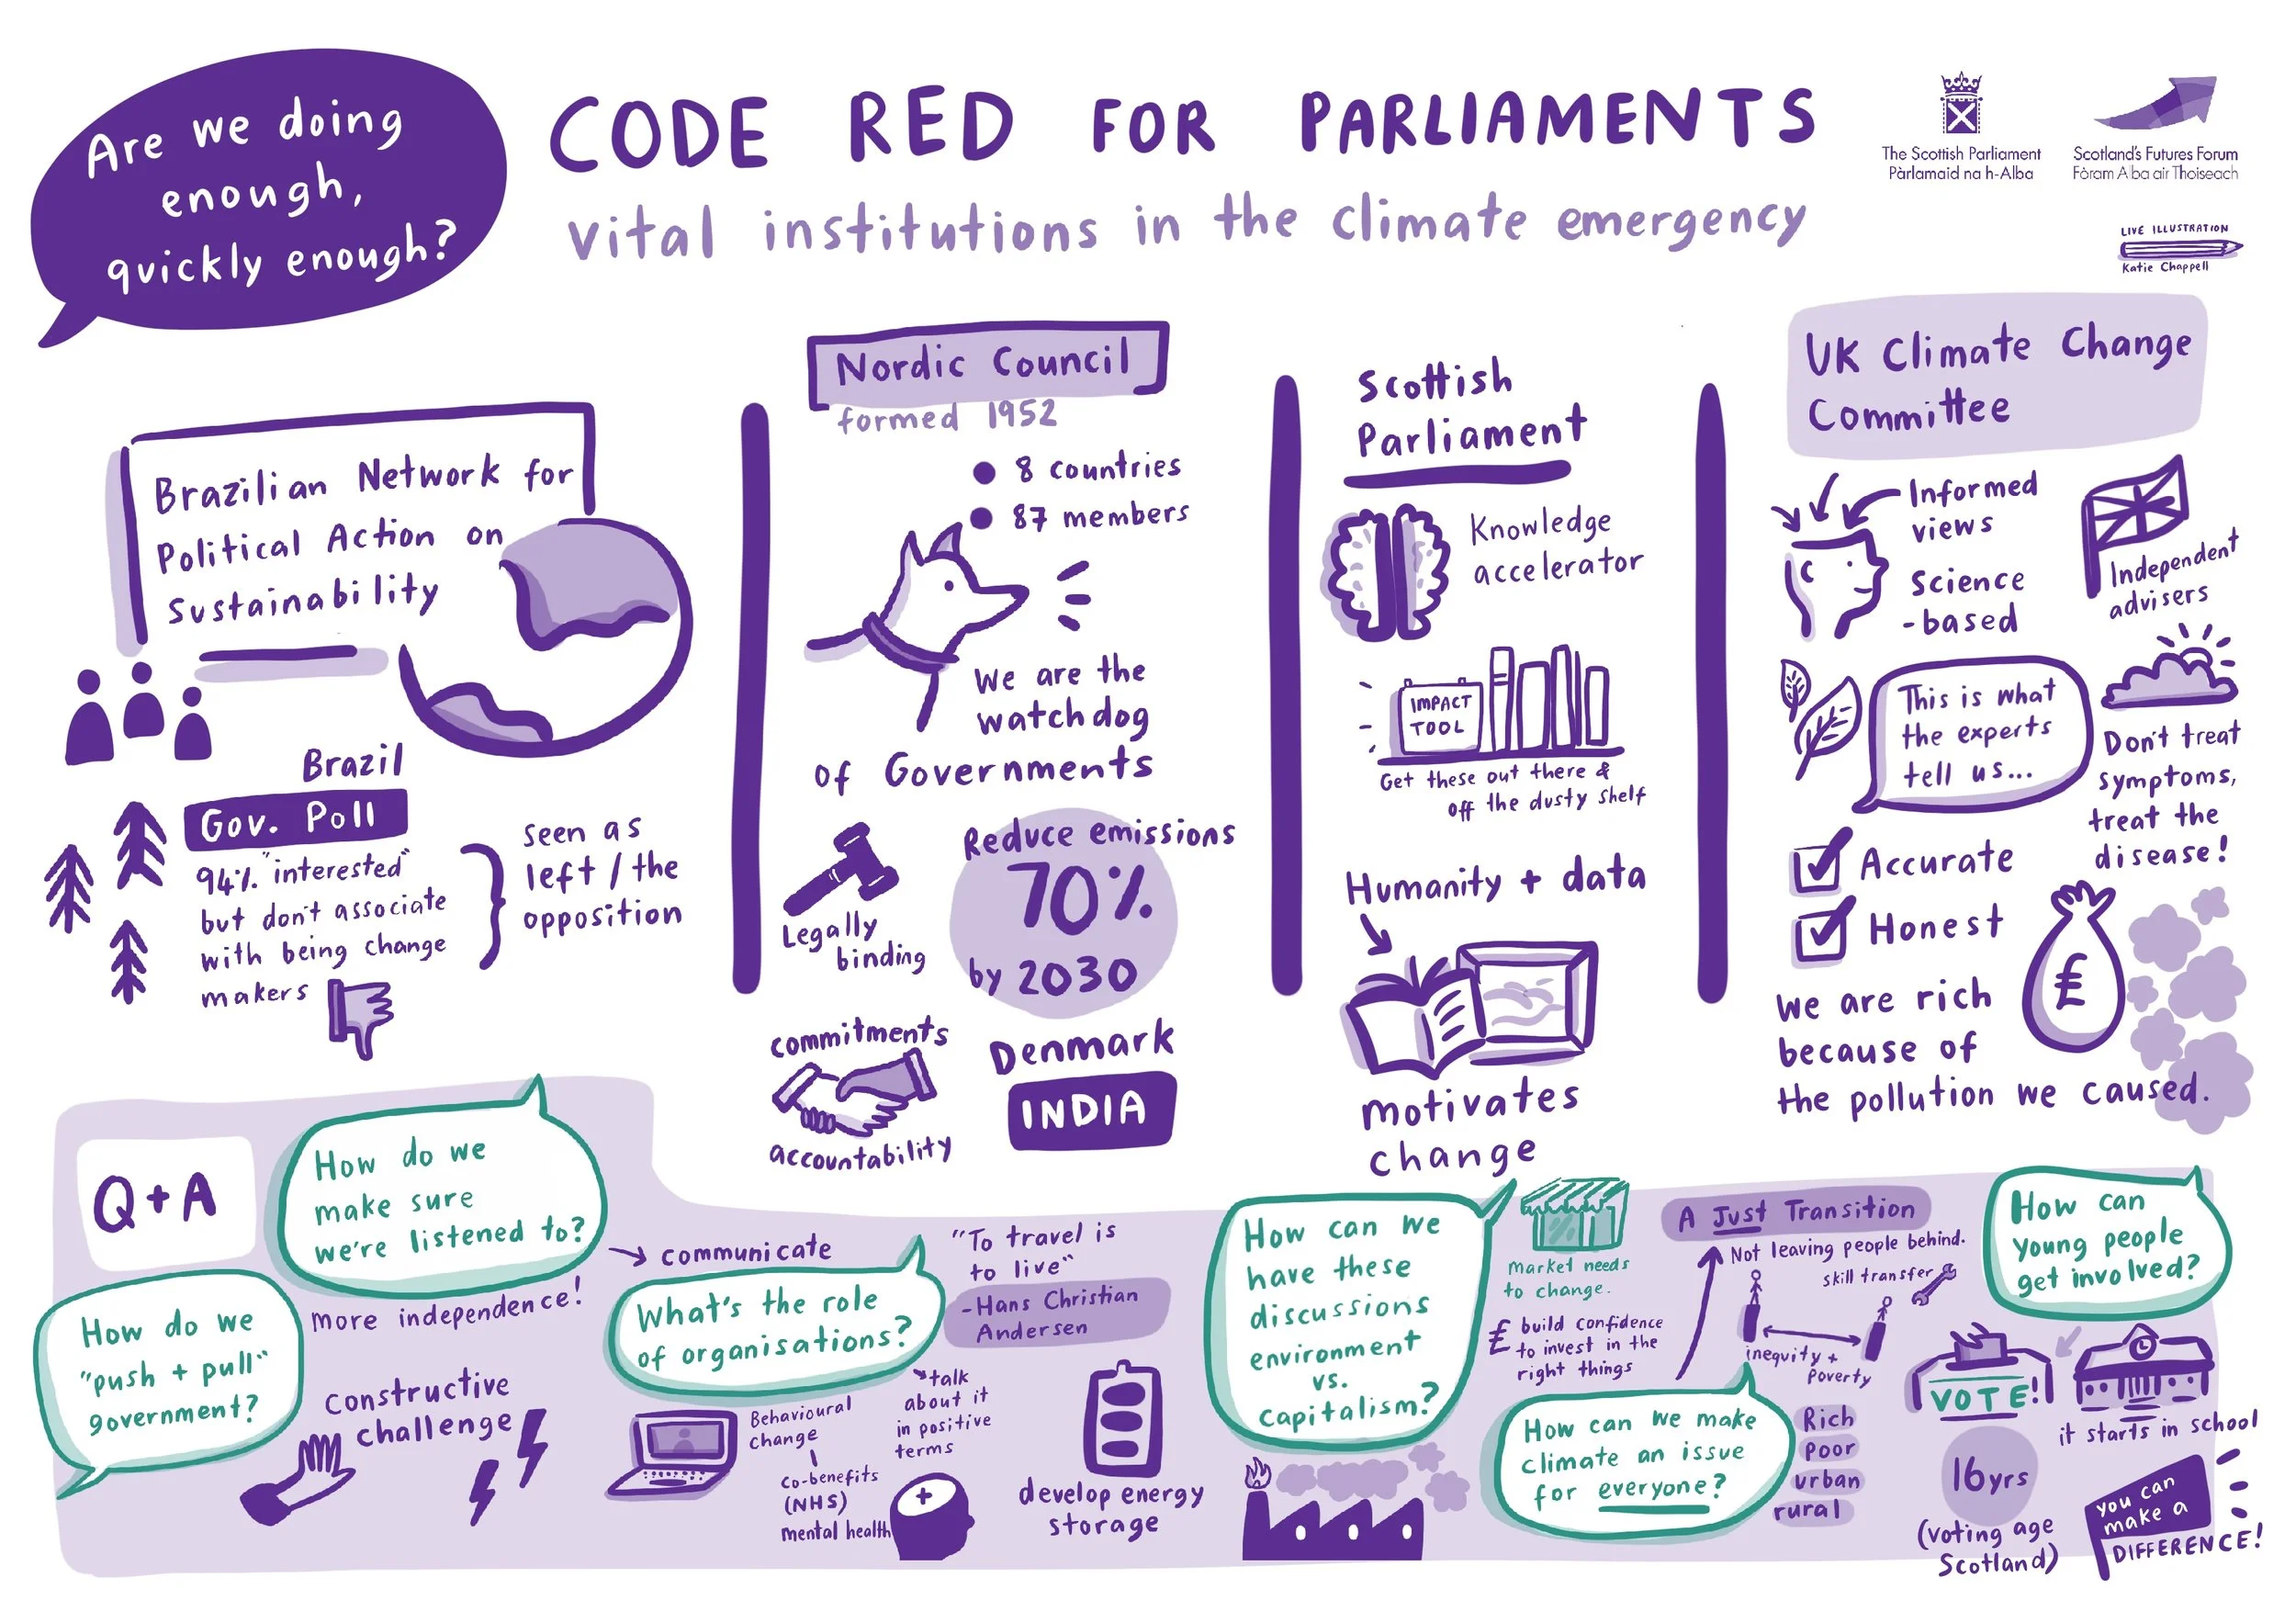 Are we doing
enough,
quickly enough?
CODE RED FOR PARLIAMENTS
vital institutions in the climate emergency
The Scottish Parliament
Pàrlamaid na h-Alba
Scotland's Futures Forum
Fòram Alba air Thoiseach
LIVE ILLUSTRATION
Katie Chappell
Brazilian Network for
Political Action on
Sustainability
Brazil
Gov. Poll
94% "interested"
but don't associate
with being change
makers
Seen as
left / the
opposition
Nordic Council
formed 1952
8 countries
87 members
We are the
watchdog
of Governments
Legally
binding
Reduce emissions
70%
by 2030
commitments
accountability
Denmark
INDIA
Scottish
Parliament
Knowledge
accelerator
IMPACT
TOOL
Get these out there &
off the dusty shelf
Humanity + data
motivates
change
UK Climate Change
Committee
Informed
views
Science
-based
Independent
advisers
This is what
the experts
tell us...
Don't treat
symptoms,
treat the
disease!
Accurate
Honest
£
we are rich
because of
the pollution we caused.
Q+A
How do we
make sure
we're listened to?
more independence!
How do we
"push + pull"
government?
Constructive
challenge
communicate
What's the role
of organisations?
"To travel is
to live"
-Hans Christian
Andersen
Behavioural
change
Co-benefits
(NHS)
mental health
talk
about it
in positive
terms
+
develop energy
storage
How can we
have these
discussions
environment
vs.
capitalism?
market needs
to change.
£ build confidence
to invest in the
right things
A Just Transition
Not leaving people behind.
skill transfer
inequity +
poverty
How can we make
climate an issue
for everyone?
Rich
Poor
urban
rural
How can
young people
get involved?
VOTE!
it starts in school
16yrs
(voting age
Scotland)
you can
make a
DIFFERENCE!